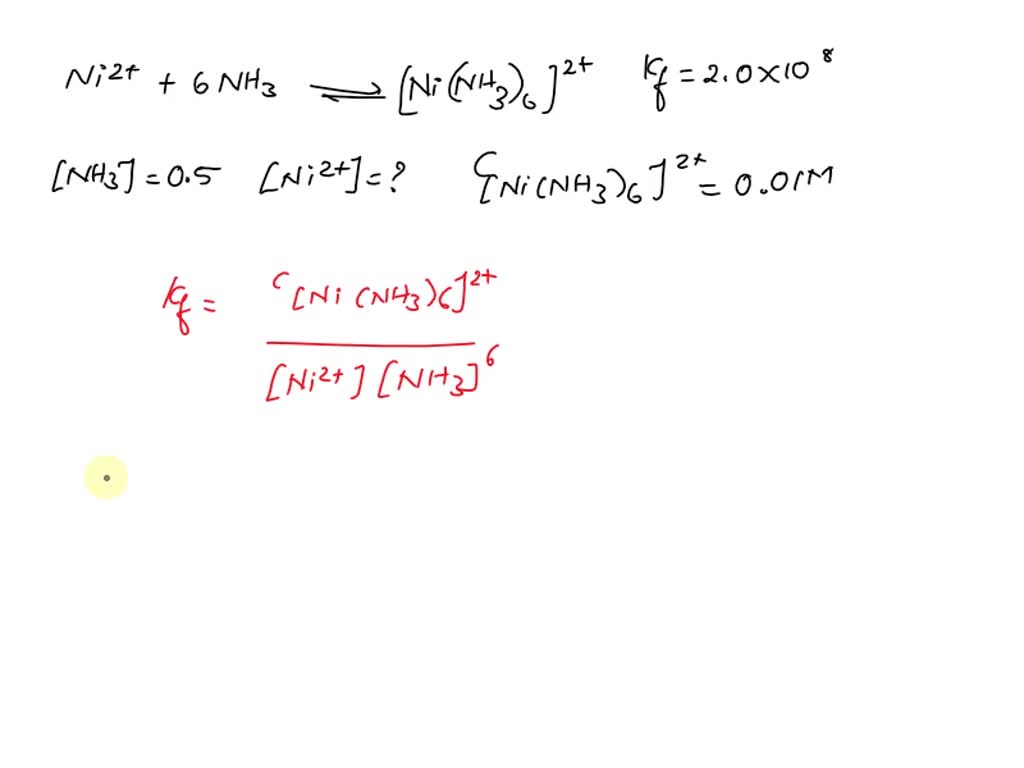 Ni²⁺ + 6 NH₃ ⇌ [Ni(NH₃)₆]²⁺ Kf = 2.0×10⁸
[NH₃] = 0.5 [Ni²⁺] = ? [Ni(NH₃)₆]²⁺ = 0.01M
Kf = [[Ni(NH₃)₆]²⁺
[Ni²⁺][NH₃]⁶